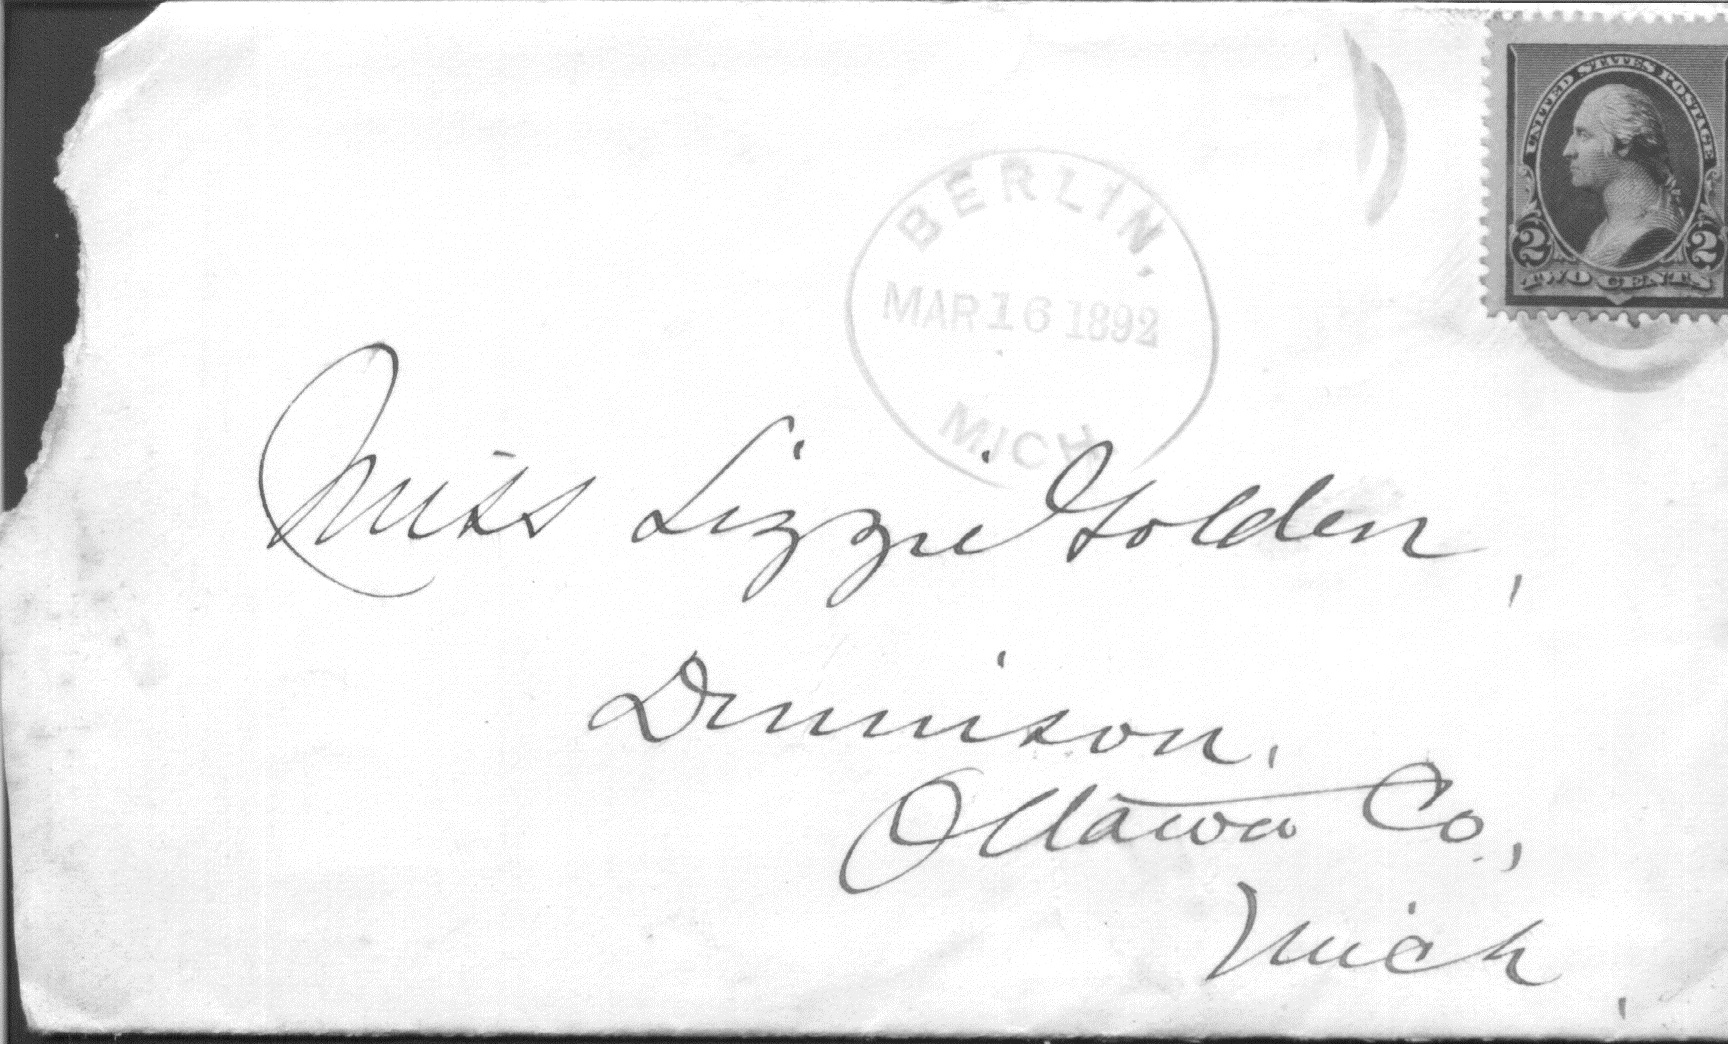 UNITED STATES POSTAGE
2 2
TWO CENTS
BERLIN,
MAR 16 1892
MICH
Miss Lizzie Golden,
Dennison,
Ottawa Co.,
Mich